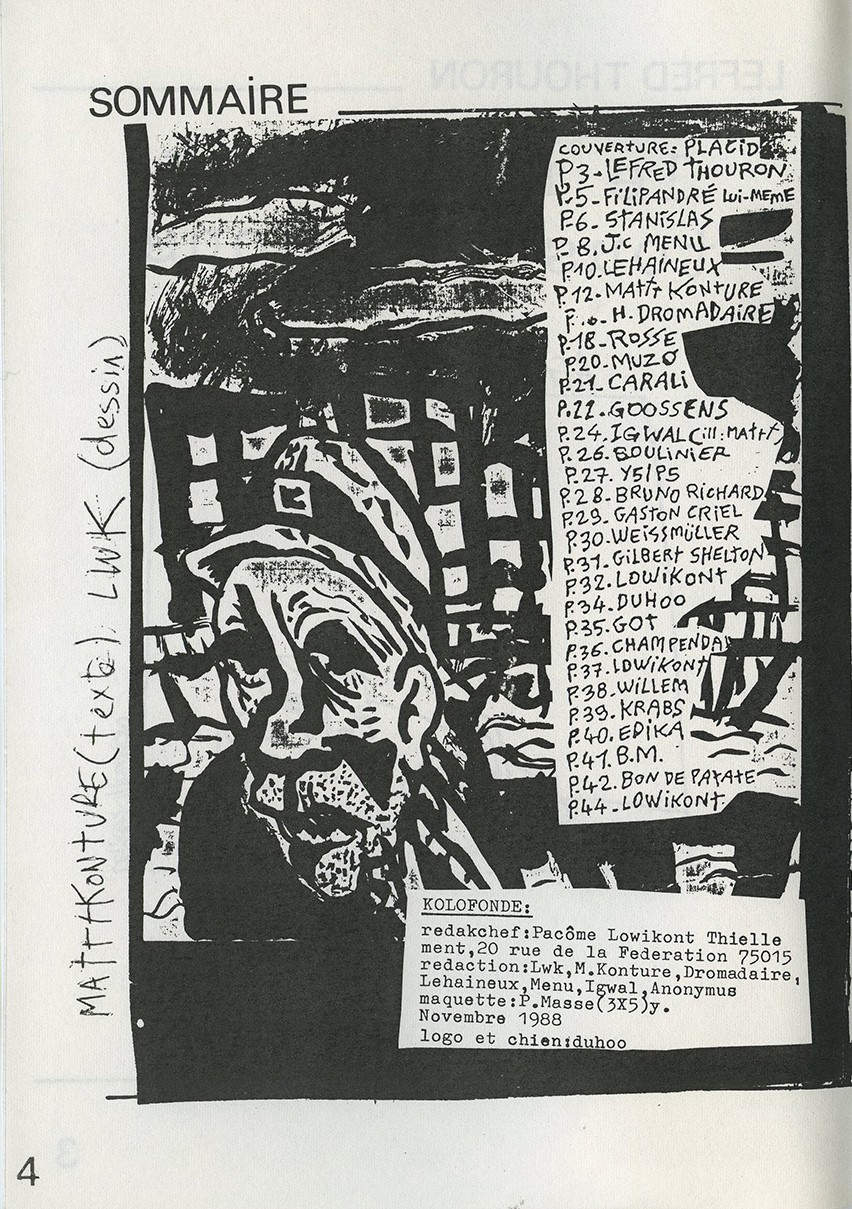 LEFRED THOURON
SOMMAiRE
COUVERTURE: PLACID
P3-LEFRED THOURON
P.5-FiLIPANDRÉ LUi-MEME
P.6-STANiSLAS
P.8.J.C MENU
P.10.LEHAINEUX
P.12-MATTT KONTURE
P...-H.DROMADAiRE
P.18-ROSSE
P.20.MUZO
P.21-CARALi
P.22-GOOSSENS
P.24.IGWAL(ill:MATTT)
P.26.BOULINIER
P.27.Y5/P5
P.28-BRUNO RICHARD
P.29.GASTON CRIEL
P.30.WEISSMÜLLER
P.31.GILBERT SHELTON
P.32.LOWIKONT
P.34.DUHOO
P.35.GOT
P.36.CHAMPENDAL
P.37.LOWIKONT
P.38-WILLEM
P.39.KRABS
P.40.EDIKA
P.41.B.M.
P.42.BON DE PATATE
P.44-LOWIKONT
MATTTKONTURE(texte). LWK (dessin)
KOLOFONDE:
redakchef:Pacôme Lowikont Thielle
ment,20 rue de la Federation 75015
redaction:Lwk,M.Konture,Dromadaire,
Lehaineux,Menu,Igwal,Anonymus
maquette:P.Masse(3X5)y.
Novembre 1988
logo et chien:duhoo
4
3